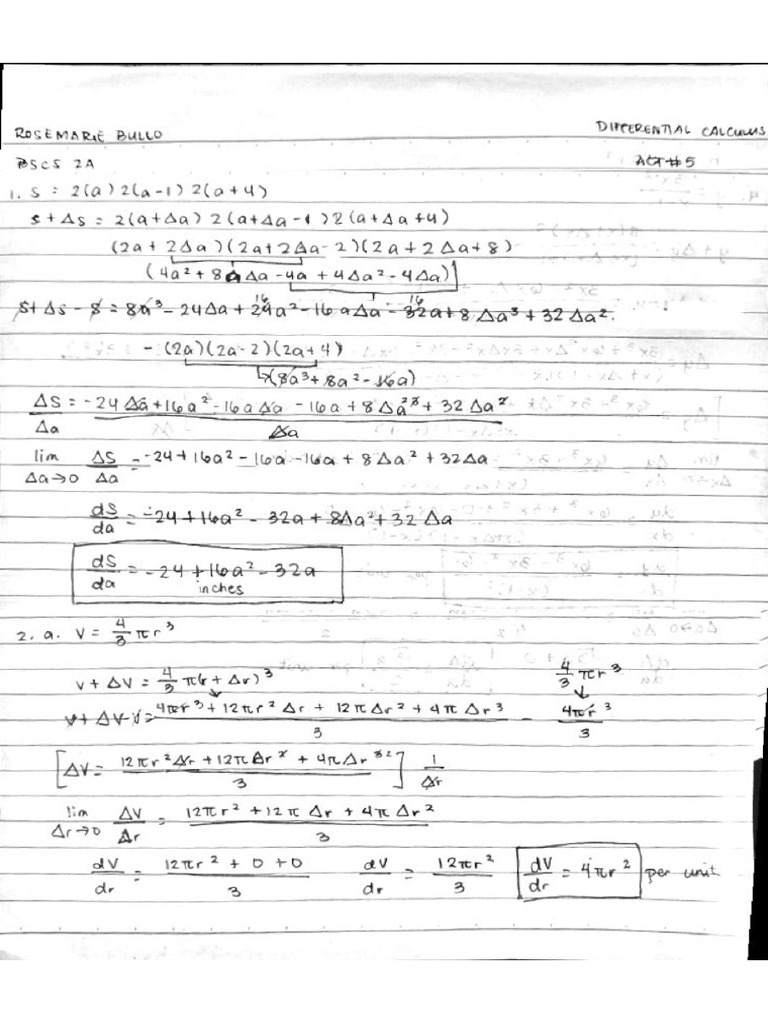 ROSEMARIE BULLO
DIFFERENTIAL CALCULUS
BSCS 2A
ACT #5
1. S = 2(a) 2(a-1) 2(a+4)
S + ΔS = 2(a+Δa) 2(a+Δa-1) 2(a+Δa+4)
(2a + 2Δa)(2a+2Δa-2)(2a+2Δa+8)
(4a² + 8aΔa - 4a + 4Δa² - 4Δa)
S+ΔS-S = 8a³ - 24Δa + 24a² - 16aΔa - 32a + 8Δa³ + 32Δa².
16 16
- (2a)(2a-2)(2a+4)
(8a³ + 8a² - 16a)
ΔS = -24Δa + 16a² - 16aΔa - 16a + 8Δa³ + 32Δa²
Δa Δa
lim ΔS = -24 + 16a² - 16a - 16a + 8Δa² + 32Δa
Δa→0 Δa
dS = -24 + 16a² - 32a + 8Δa² + 32Δa
da
dS = -24 + 16a² - 32a
da inches
2. a. V = 4/3 πr³
V + ΔV = 4/3 π(r + Δr)³ 4/3 πr³
V + ΔV - V = 4πr³ + 12πr²Δr + 12πΔr² + 4πΔr³ - 4πr³
3 3
[ΔV = 12πr²Δr + 12πΔr² + 4πΔr³] 1
3 Δr
lim ΔV = 12πr² + 12πΔr + 4πΔr²
Δr→0 Δr 3
dV = 12πr² + 0 + 0 dV = 12πr² dV = 4πr² per unit.
dr 3 dr 3 dr